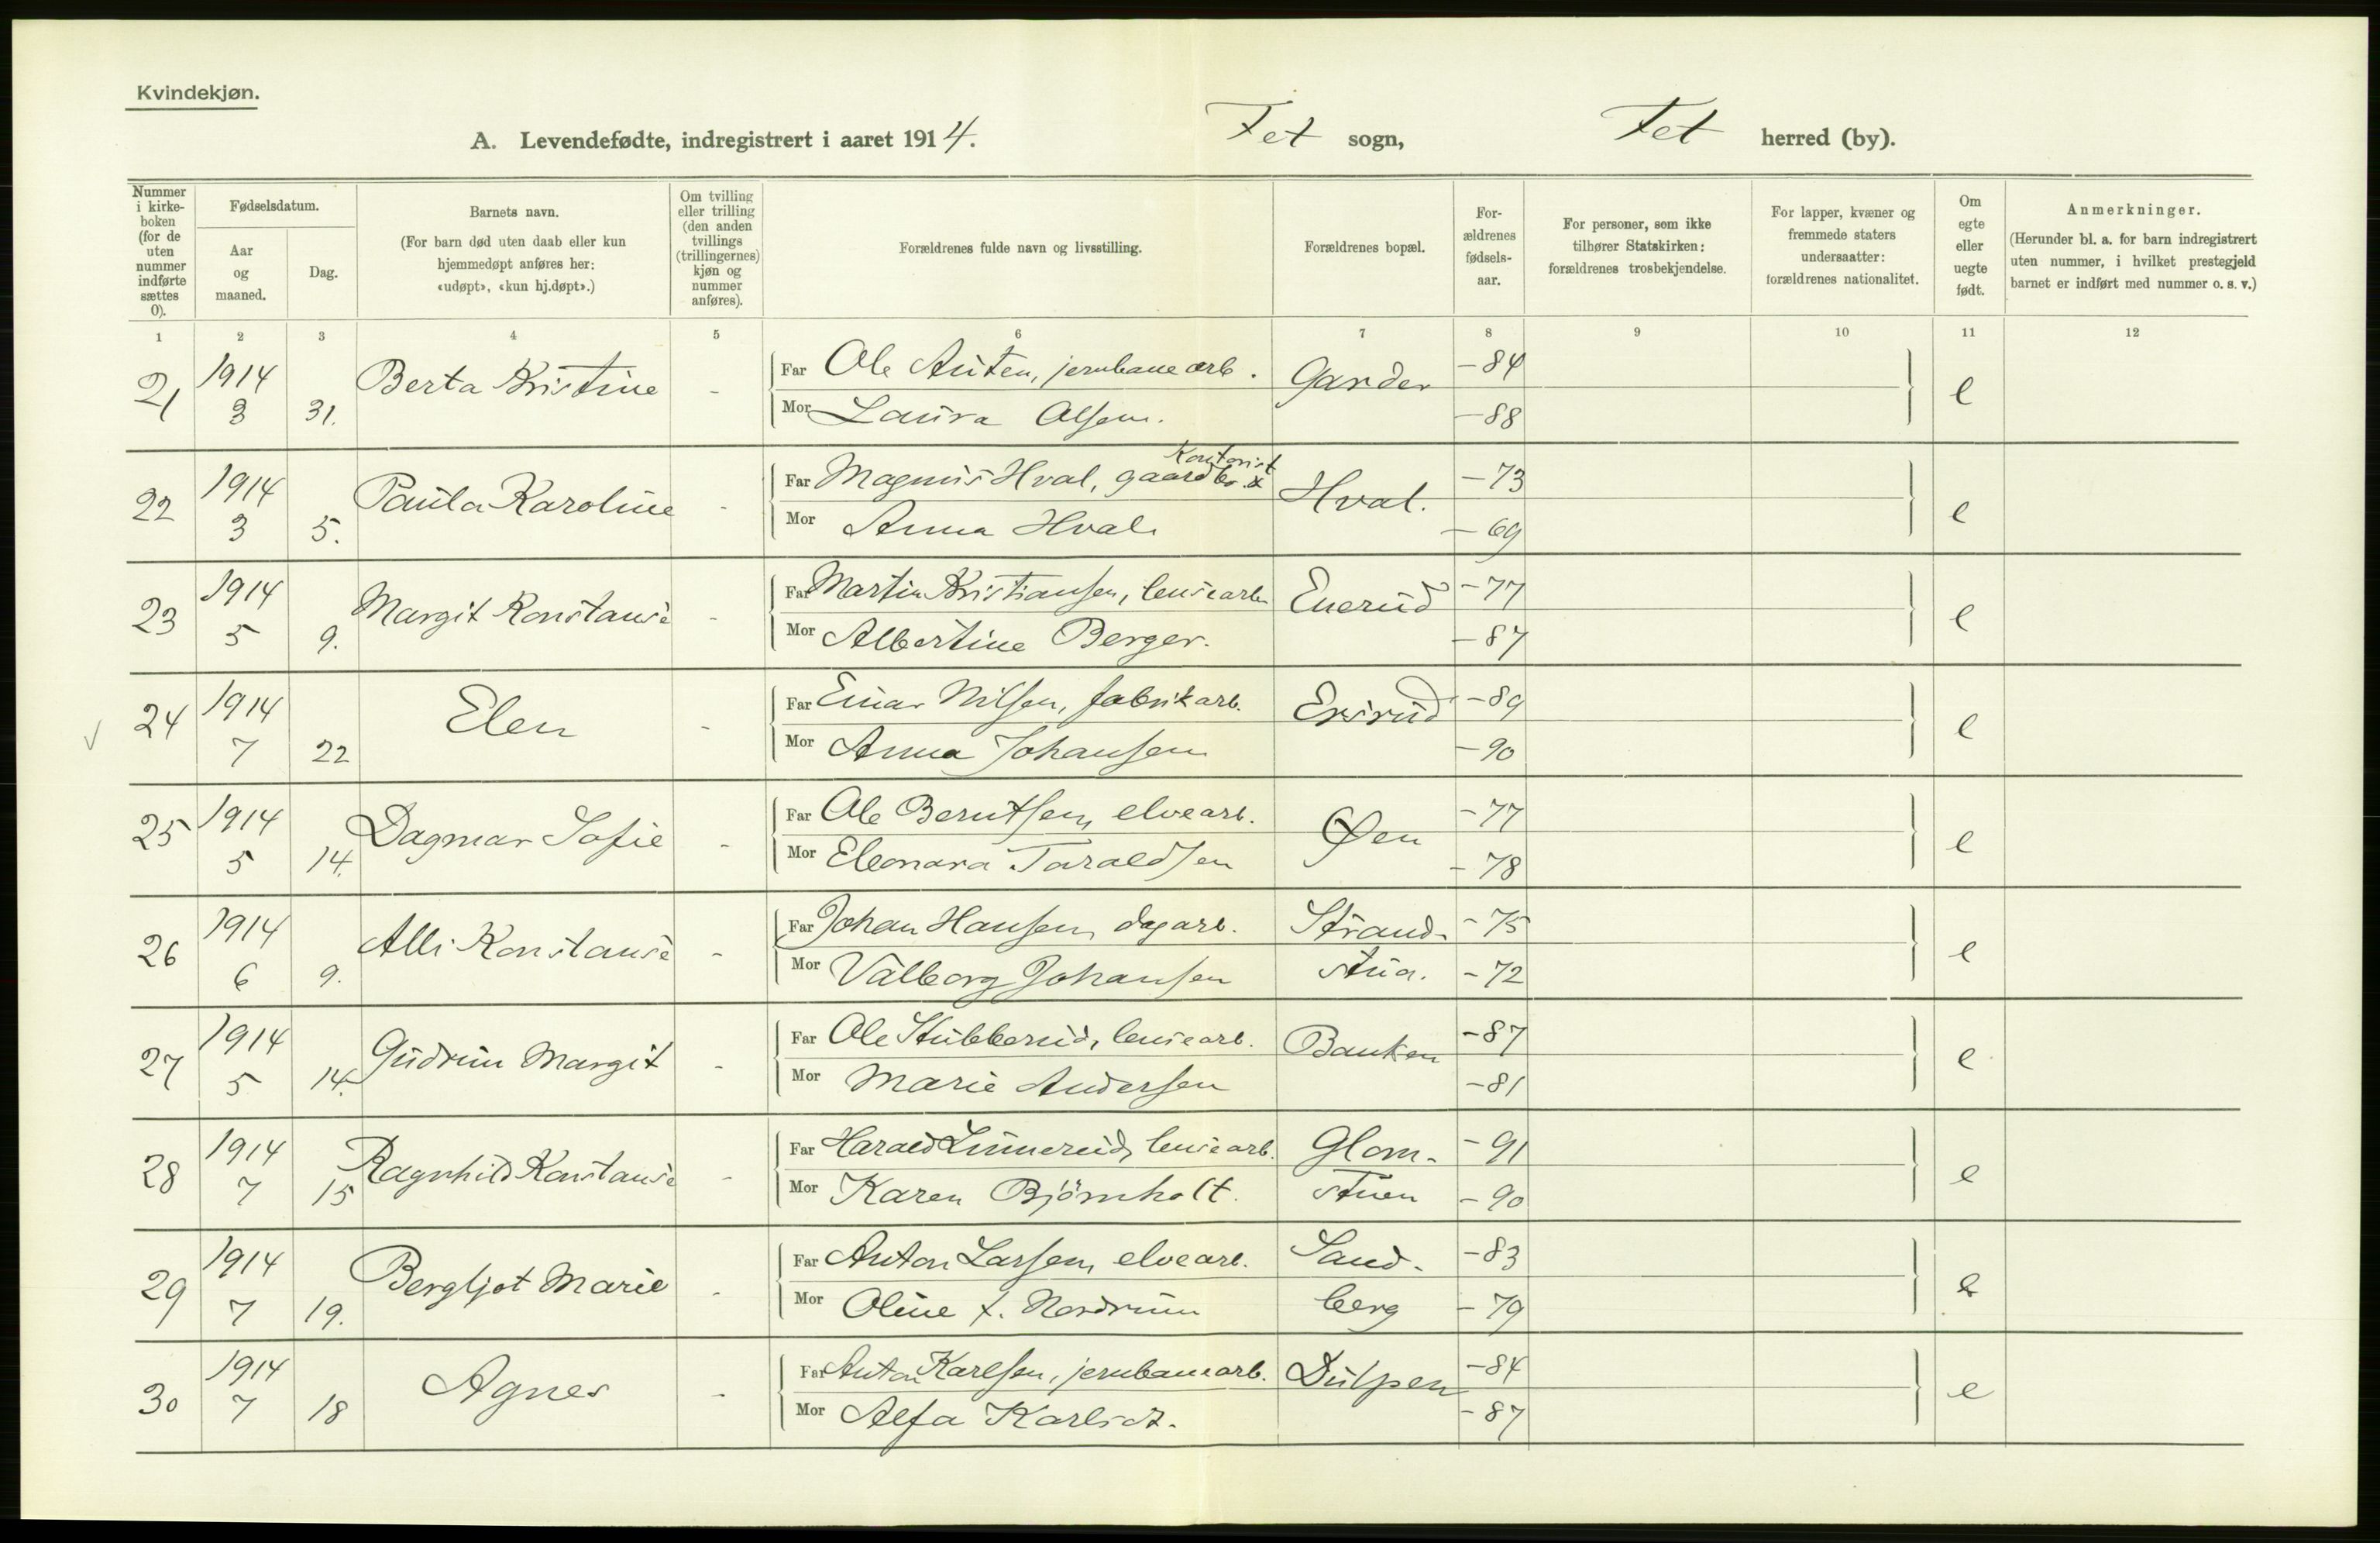 Kvindekjøn.
A. Levendefødte, indregistrert i aaret 1914. Fet sogn, Fet herred (by).
Nummer i kirkeboken (for de uten nummer indførte sættes 0).
Fødselsdatum.
Aar og maaned.
Dag.
Barnets navn.
(For barn død uten daab eller kun hjemmedøpt anføres her: «udøpt», «kun hj.døpt».)
Om tvilling eller trilling (den anden tvillings (trillingernes) kjøn og nummer anføres).
Forældrenes fulde navn og livsstilling.
Forældrenes bopæl.
For-ældrenes fødsels-aar.
For personer, som ikke tilhører Statskirken: forældrenes trosbekjendelse.
For lapper, kvæner og fremmede staters undersaatter: forældrenes nationalitet.
Om egte eller uegte født.
Anmerkninger.
(Herunder bl. a. for barn indregistrert uten nummer, i hvilket prestegjeld barnet er indført med nummer o. s. v.)
1 2 3 4 5 6 7 8 9 10 11 12
21 1914 3 31. Berta Kristine - Far Ole Auten, jernbanearb. Garder -84 e
Mor Laura Olsen. -88
22 1914 3 5. Paula Karoline - Far Magnus Hval, gaardbr. & Kontorist Hval. -73 e
Mor Anna Hval. -69
23 1914 5 9. Margit Konstanse - Far Martin Kristiansen, lensearb. Enerud -77 e
Mor Albertine Berger. -87
24 1914 7 22 Elen - Far Einar Nilsen, fabrikarb. -89 e
Mor Anna Johansen -90
25 1914 5 14. Dagmar Sofie - Far Ole Berntsen, elvearb. Øen -77 e
Mor Eleonora Taraldsen -78
26 1914 6 9. Alli Konstanse - Far Johan Hansen, dagarb. Strand- -75 e
Mor Valborg Johansen stua. -72
27 1914 5 14. Gudrun Margit - Far Ole Stubberud, lensearb. Banken -87 e
Mor Marie Andersen -81
28 1914 7 15 Ragnhild Konstanse - Far Harald Linnerud, lensearb. Glom- -91 e
Mor Karen Björnholt. stuen -90
29 1914 7 19. Bergljot Marie - Far Anton Larsen, elvearb. Sand- -83 e
Mor Oline f. Nordrum berg -79
30 1914 7 18 Agnes - Far Anton Karlsen, jernbanearb. Dulpen -84 e
Mor Alfa Karlsdt. -87